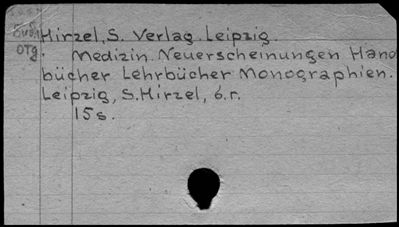 Hirzel, S. Verlag. Leipzig.
OTg. Medizin. Neuerscheinungen Hand
bücher Lehrbücher Monographien.
Leipzig, S. Hirzel, é. r.
15 s.